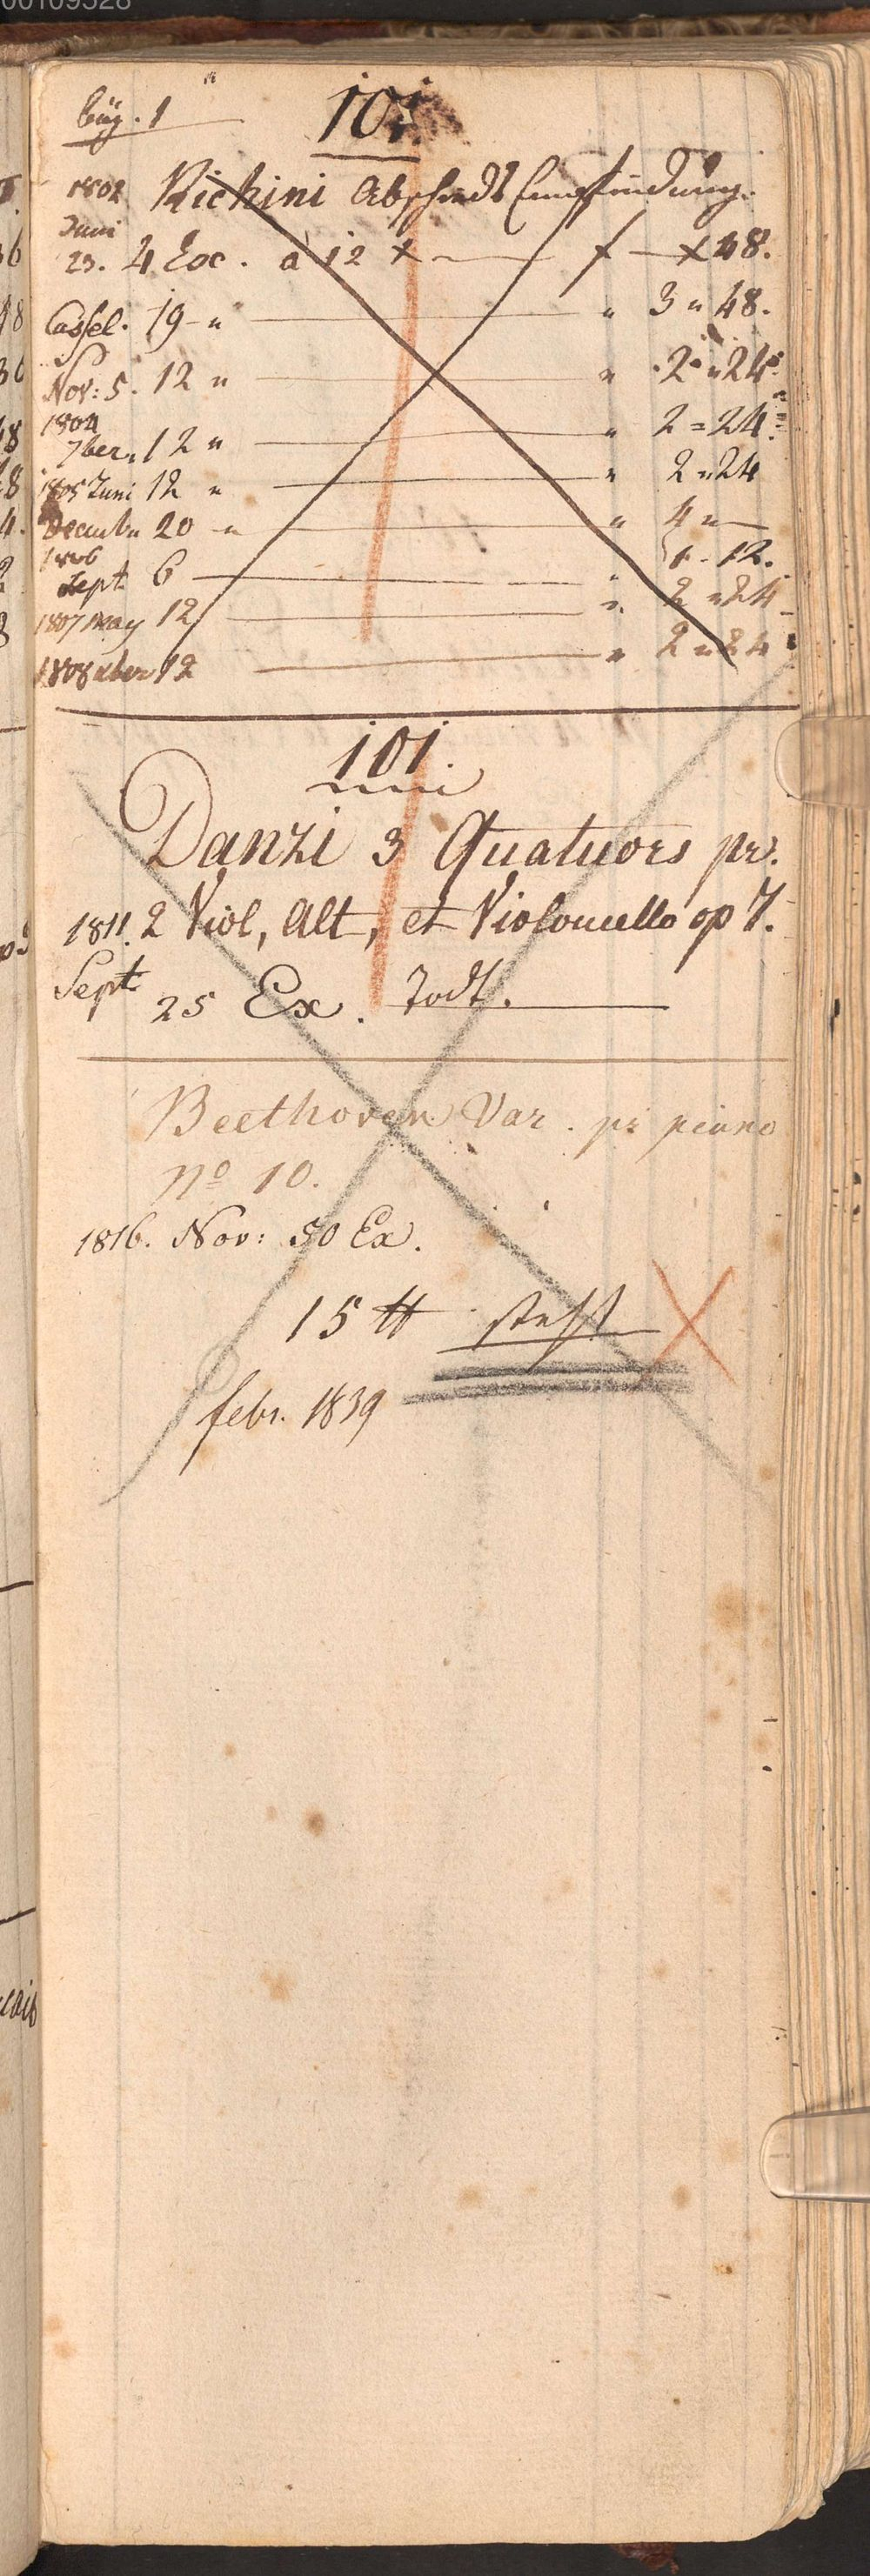 00109528
büg. 1
101
1802 Richini Abschieds Empfindung.
Juni
23. 4 Exx. a 12 x — f — x 48.
Cassel. 19 " — " 3 " 48.
Nov: 5. 12 " — " 2 " 24
1804
7ber. 12 " — " 2 = 24
1805 Juni 12 " — " 2 " 24
Decemb. 20 " — " 4 " —
1806
Sept. 6 — " 1 - 12.
1807 may 12 — " 2 " 24
1808 xber 12 — " 2 " 24
101.
Danzi 3 Quatuors pr.
1811. 2 Viol, Alt, et Violoncello op 7.
Sept
25 Ex. Todt.
Beethoven Var. pr piano
No 10.
1816. Nov: 50 Ex.
15 ℔ steht
febr. 1839